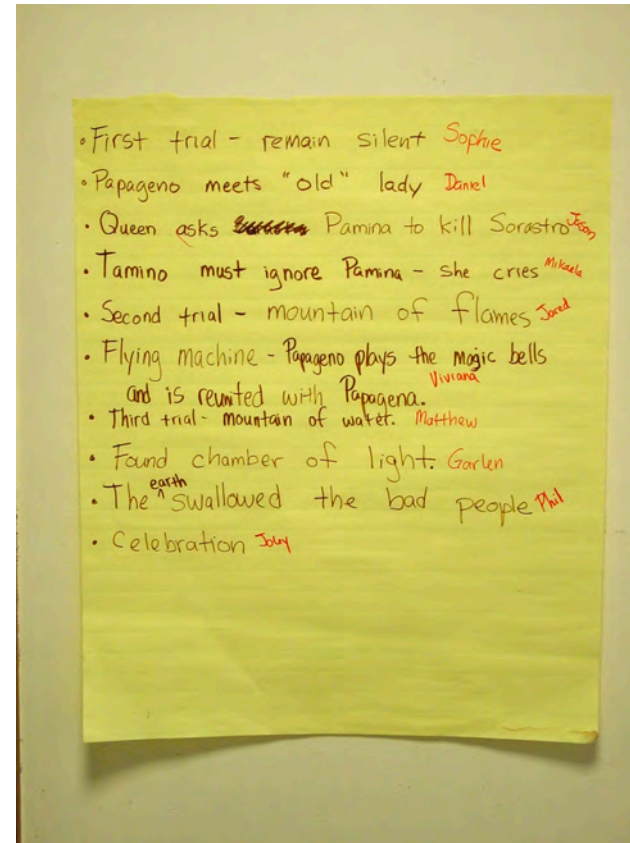 • First trial - remain silent Sophie
• Papageno meets "old" lady Daniel
• Queen asks Pamina to kill Sorastro Jason
• Tamino must ignore Pamina - she cries Mikaela
• Second trial - mountain of flames Jared
• Flying machine - Papageno plays the magic bells
and is reunited with Papagena. Viviana
• Third trial - mountain of water. Matthew
• Found chamber of light. Garlen
• The earth swallowed the bad people Phil
• Celebration